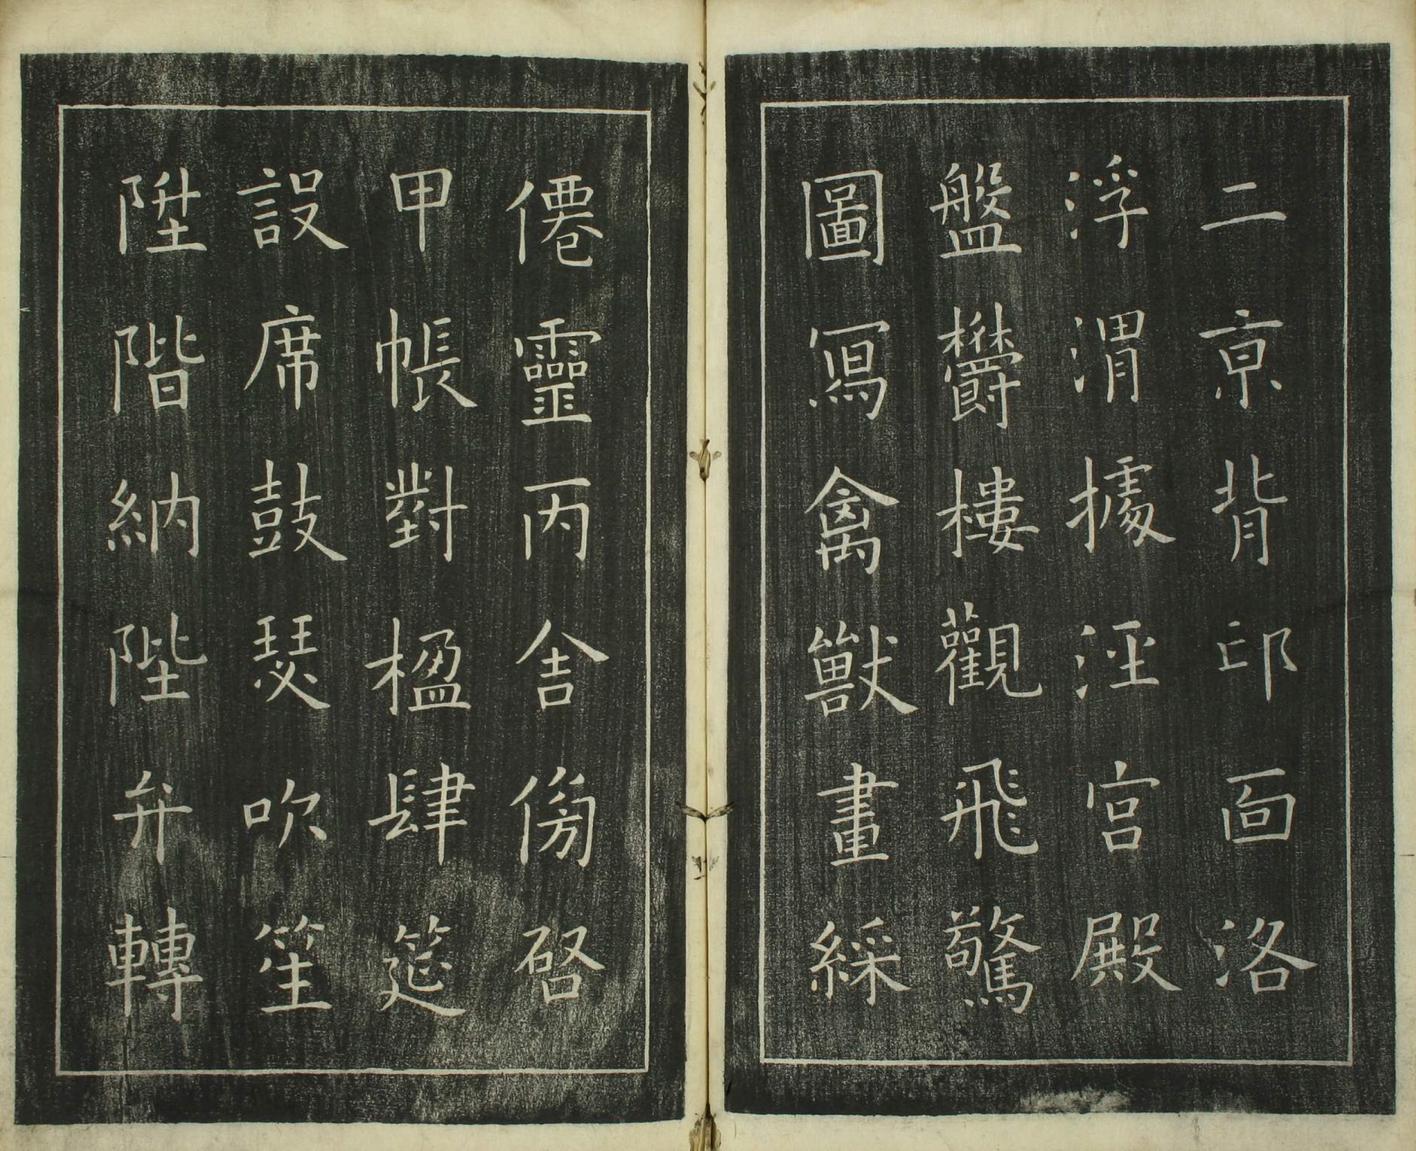 二京背邙面洛
浮渭據涇宮殿
盤欝樓觀飛驚
圖寫禽獸畫綵
僊靈丙舍傍啓
甲帳對楹肆筵
設席鼓瑟吹笙
陞階納陛弁轉